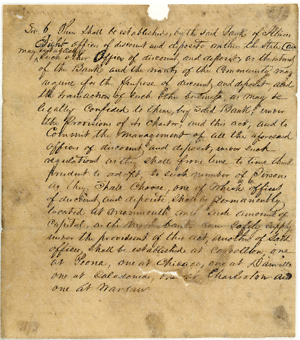 Sec 6 There shall be established, by the said Bank of Illinois
Eight offices of discount and deposit, within the State,
such other Offices of discount, and deposit, as the interest
of the Bank, and the wants of the Community may
require, for the purpose of discount, and deposit, and
the transaction of such other business, as may be
legally Confided to them, by said Bank, under
the provisions of its Charter, and this act, and to
Commit the Management of all the aforesaid
offices of discount, and deposit, under such
regulations as they shall from time to time think
prudent to adopt, to such number of Persons
as they Shall Choose, one of which offices
of discount, and deposit, Shall be permanently
located at Monmouth and such amount of
Capital, as the Bank can safely apply
under the provisions of this act, another of said
offices, Shall be established at Carrollton, one
at Peoria, one at Chicago, one at Danville
one at Caledonia, one at Charleston and
one at Warsaw